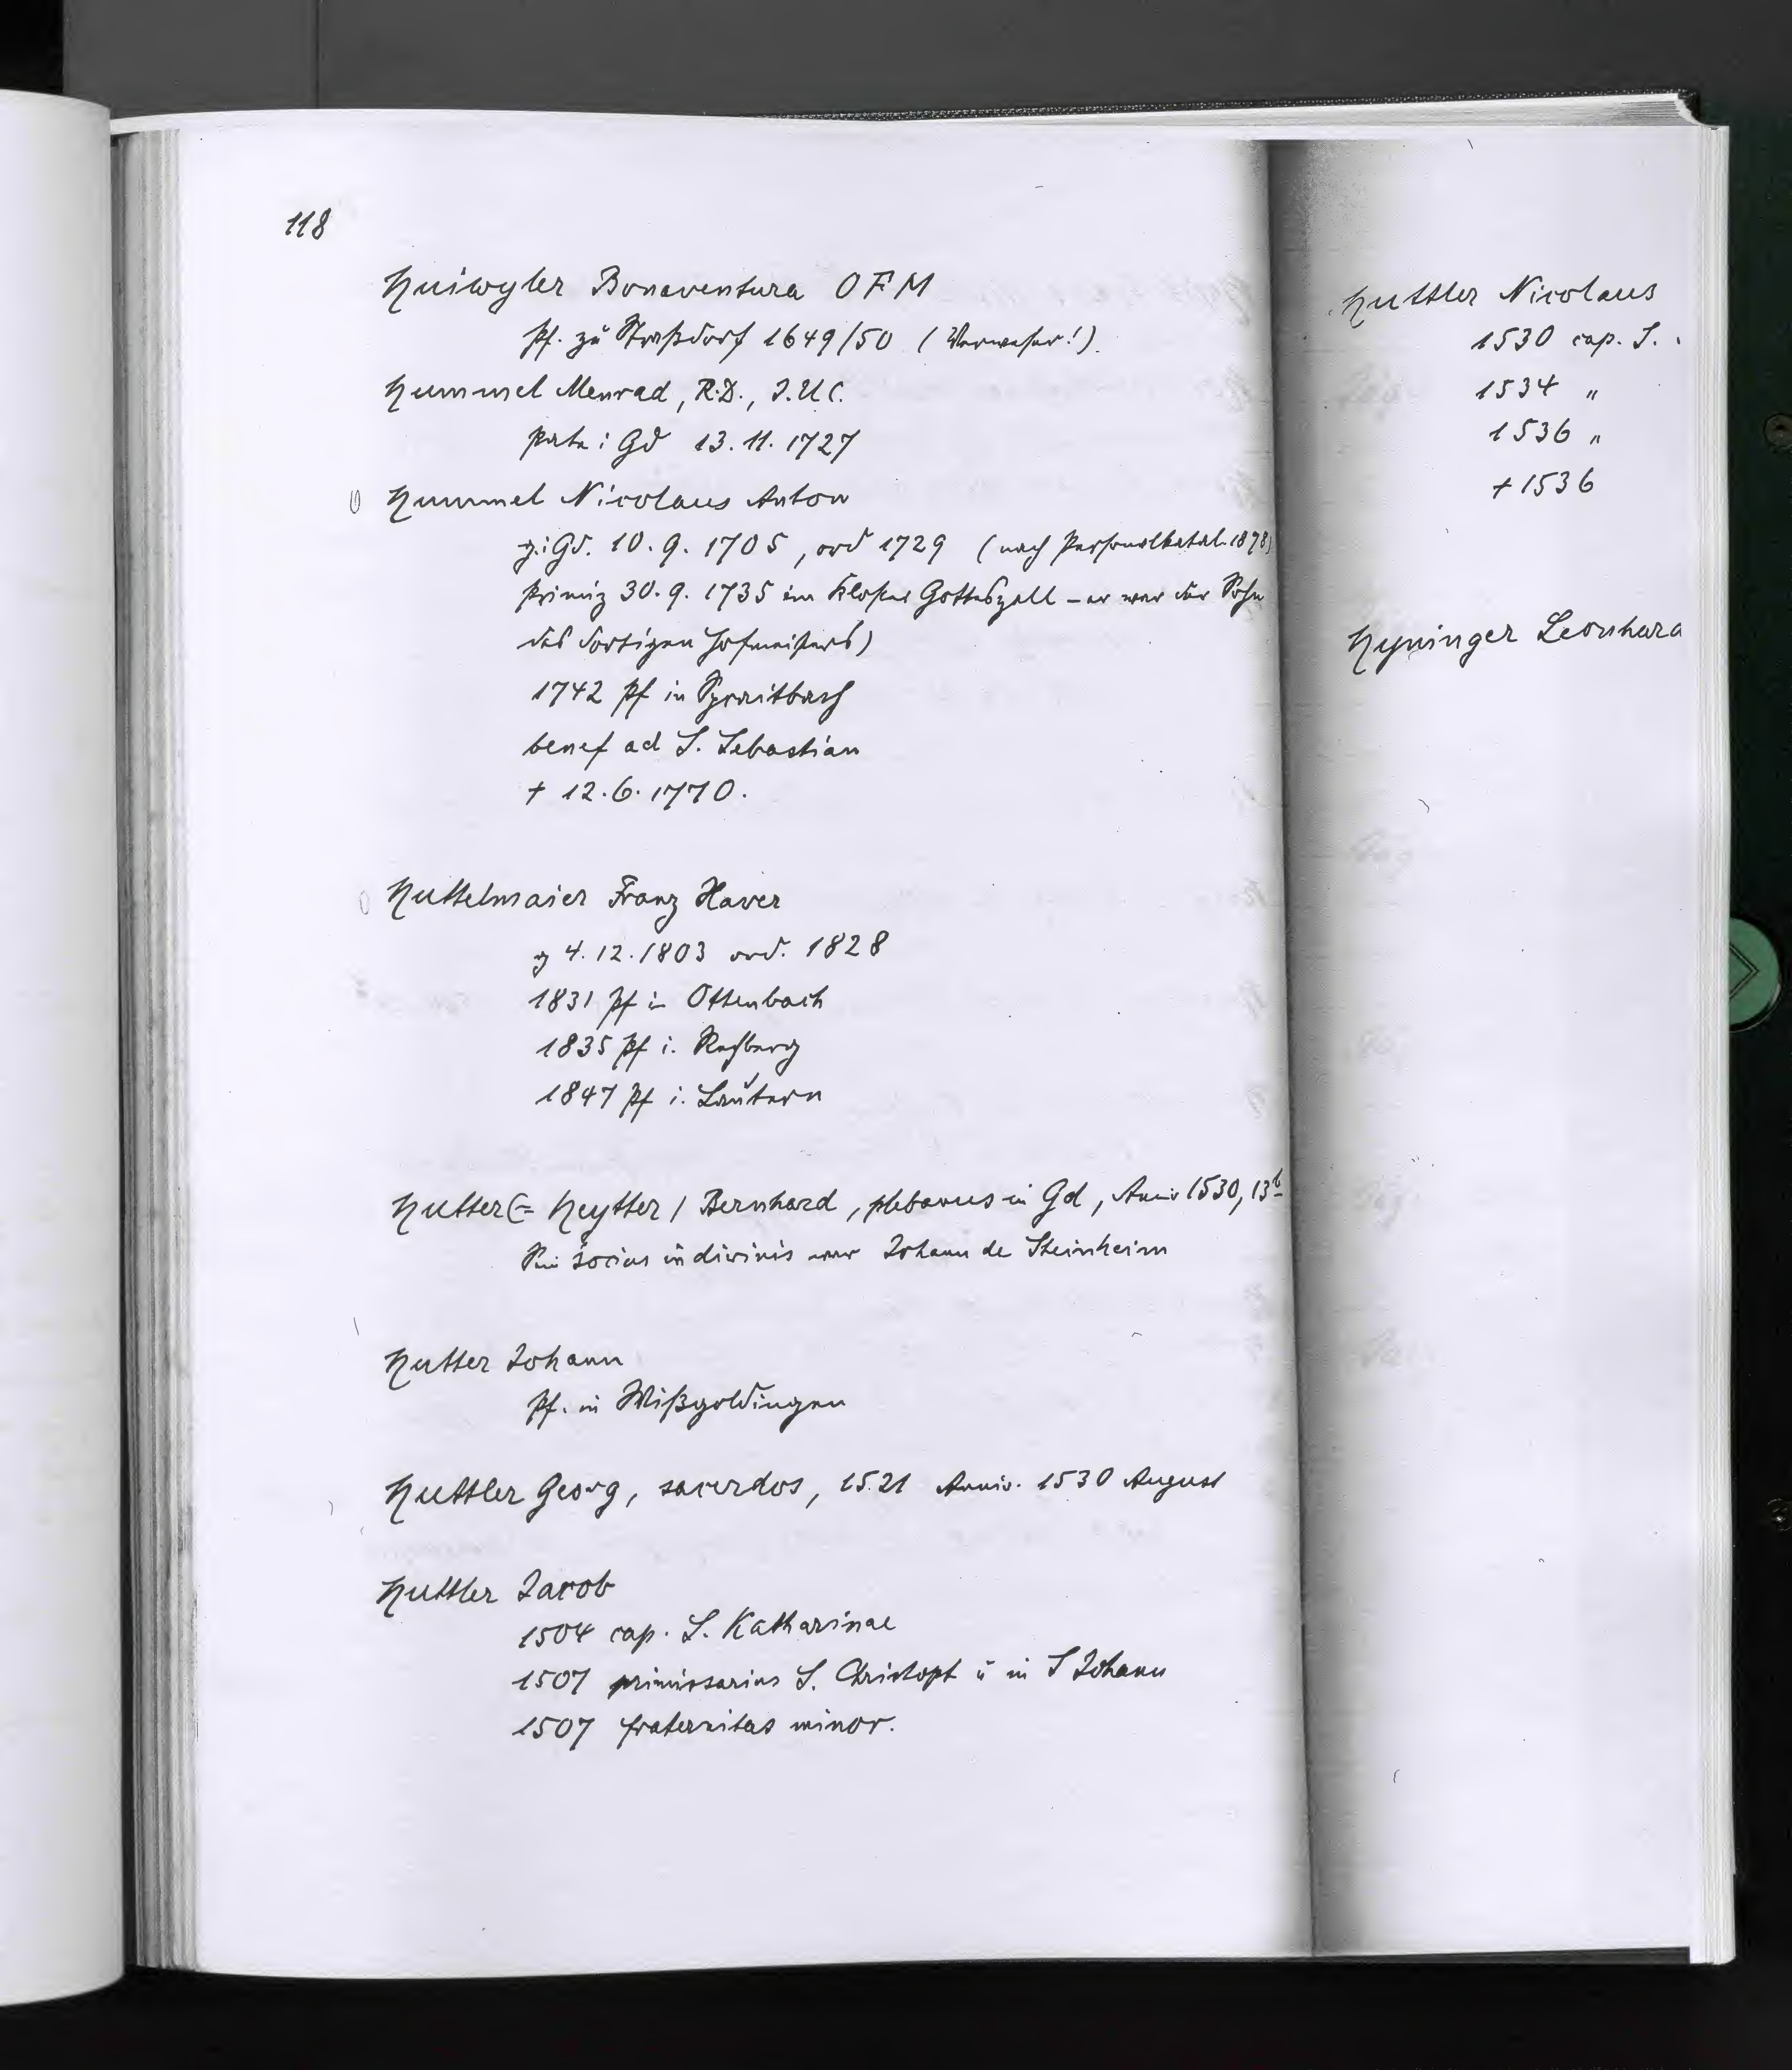 118
Huiwyler Bonaventura OFM
Pf. zu Straßdorf 1649/50 (Verweser!).
Hummel Menrad, R.D., I.U.C.
Pate i Gd 13.11.1727
Hummel Nicolaus Anton
g. i Gd. 10.9.1705, ord 1729 (nach Personalkatal. 1878)
Primiz 30.9.1735 im Kloster Gotteszell – er war der Sohn
des dortigen Hofmeisters)
1742 Pf in Spraitbach
benef ad S. Sebastian
† 12.6.1770.
Huttelmaier Franz Xaver
g 4.12.1803 ord. 1828
1831 Pf in Ottenbach
1835 Pf i. Rechberg
1847 Pf i. Lautern
Hutter (= Heytter / Bernhard, plebanus in Gd, Anniv 1530, 13b
Sein socius in divinis war Johann de Steinheim
Hutter Johann
Pf. in Wißgoldingen
Huttler Georg, sacerdos, 1521 Anniv. 1530 August
Huttler Jacob
1504 cap. S. Katharinae
1507 primissarius S. Christoph u in S Johann
1507 fraternitas minor.
Huttler Nicolaus
1530 cap. S.
1534 "
1536 "
† 1536
Hyninger Leonhard